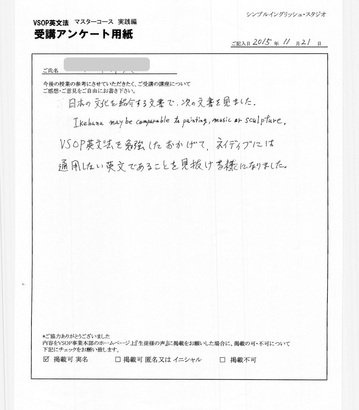 シンプルイングリッシュ・スタジオ
VSOP英文法 マスターコース 実践編
受講アンケート用紙
ご記入日 2015 年 11 月 21 日
ご氏名
今後の授業の参考にさせていただきたく、ご受講の講座について
ご感想・ご意見をご自由にお書き下さい。
日本の文化を紹介する文書で、次の文書を見ました。
Ikebana may be comparable to painting, music or sculpture.
VSOP英文法を勉強したおかげで、ネイティブには
通用しない英文であることを見抜ける様になりました。
*ご協力ありがとうございました
内容をVSOP事業本部のホームページ上『生徒様の声』に掲載をお願いした場合に、掲載の可・不可について
下記にチェックをお願い致します。
☑ 掲載可 実名 ☐ 掲載可 匿名又は イニシャル ☐ 掲載不可